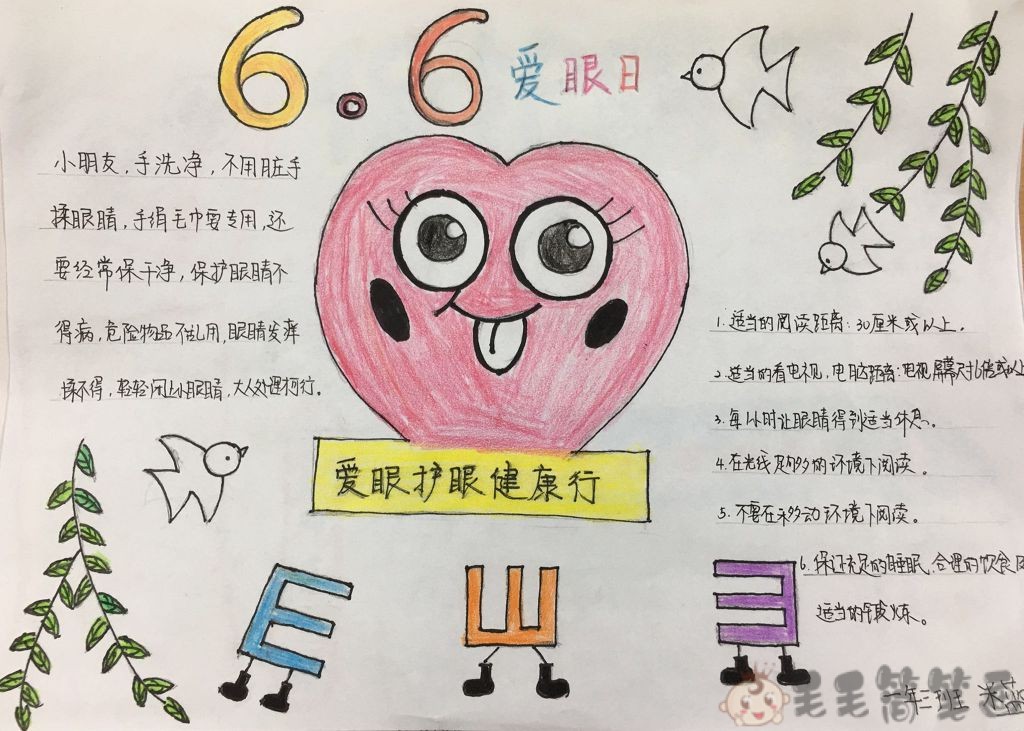 6.6 爱眼日
小朋友,手洗净,不用脏手
揉眼睛,手绢毛巾要专用,还
要经常保干净,保护眼睛不
得病,危险物品不乱用,眼睛发痒
揉不得,轻轻闭上小眼睛,大人处理才可行.
爱眼护眼健康行
1.适当的阅读距离:30厘米或以上.
2.适当的看电视,电脑距离:电视屏幕尺寸6倍或以上
3.每小时让眼睛得到适当休息。
4.在光线足够的环境下阅读。
5.不要在移动环境下阅读。
6.保证充足的睡眠,合理的饮食
适当的锻炼。
E Ш Ǝ
一年三班
毛毛简笔画